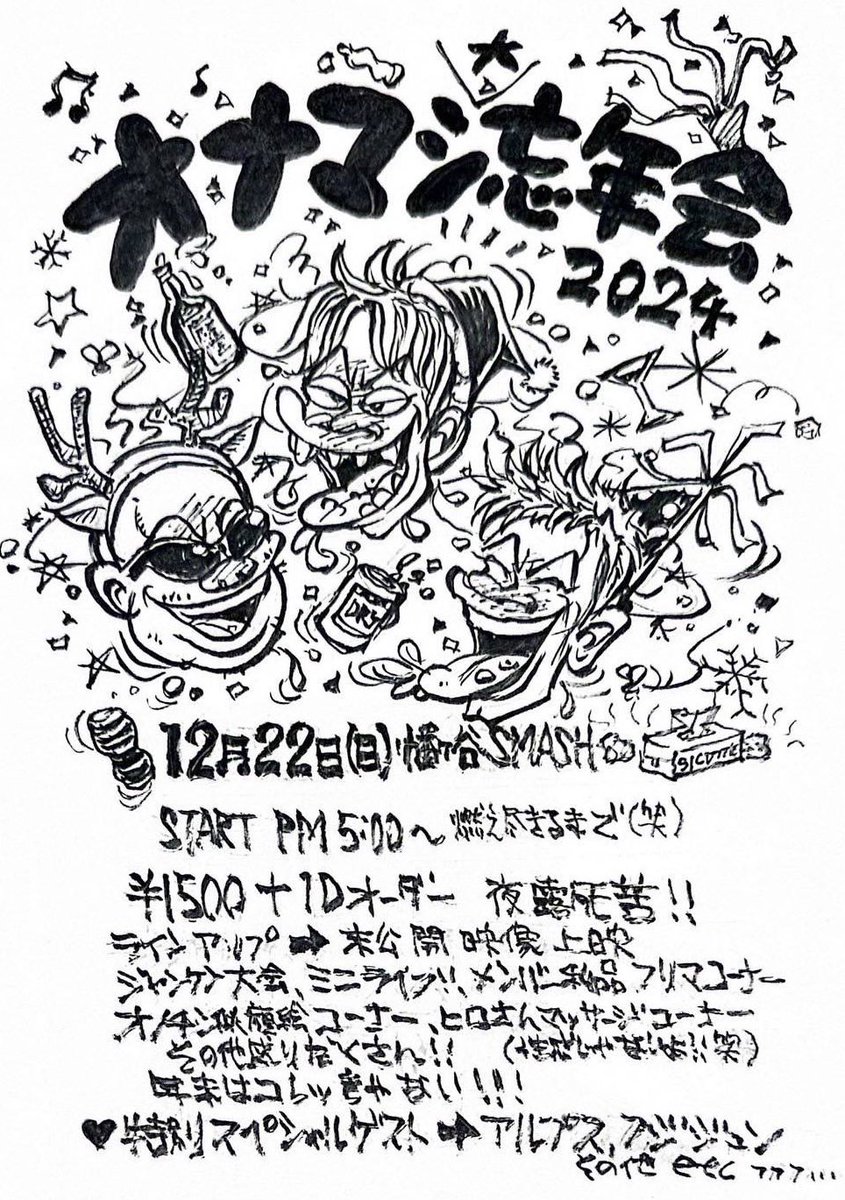 オナマシ忘年会
2024
DRY
12月22日(日)幡ヶ谷SMASH
START PM5:00〜燃え尽きるまで(笑)
¥1500+1Dオーダー 夜露死苦!!
ラインアップ➡未公開映像上映
ジャンケン大会、ミニライブ!!、メンバー私品フリマコーナー
オノチン似顔絵コーナー、ヒロさんマッサージコーナー
その他盛りだくさん!!
年末はコレッきゃない!!!
♥特別スペシャルゲスト➡アルプス、フジジュン
その他 etc フフフ...